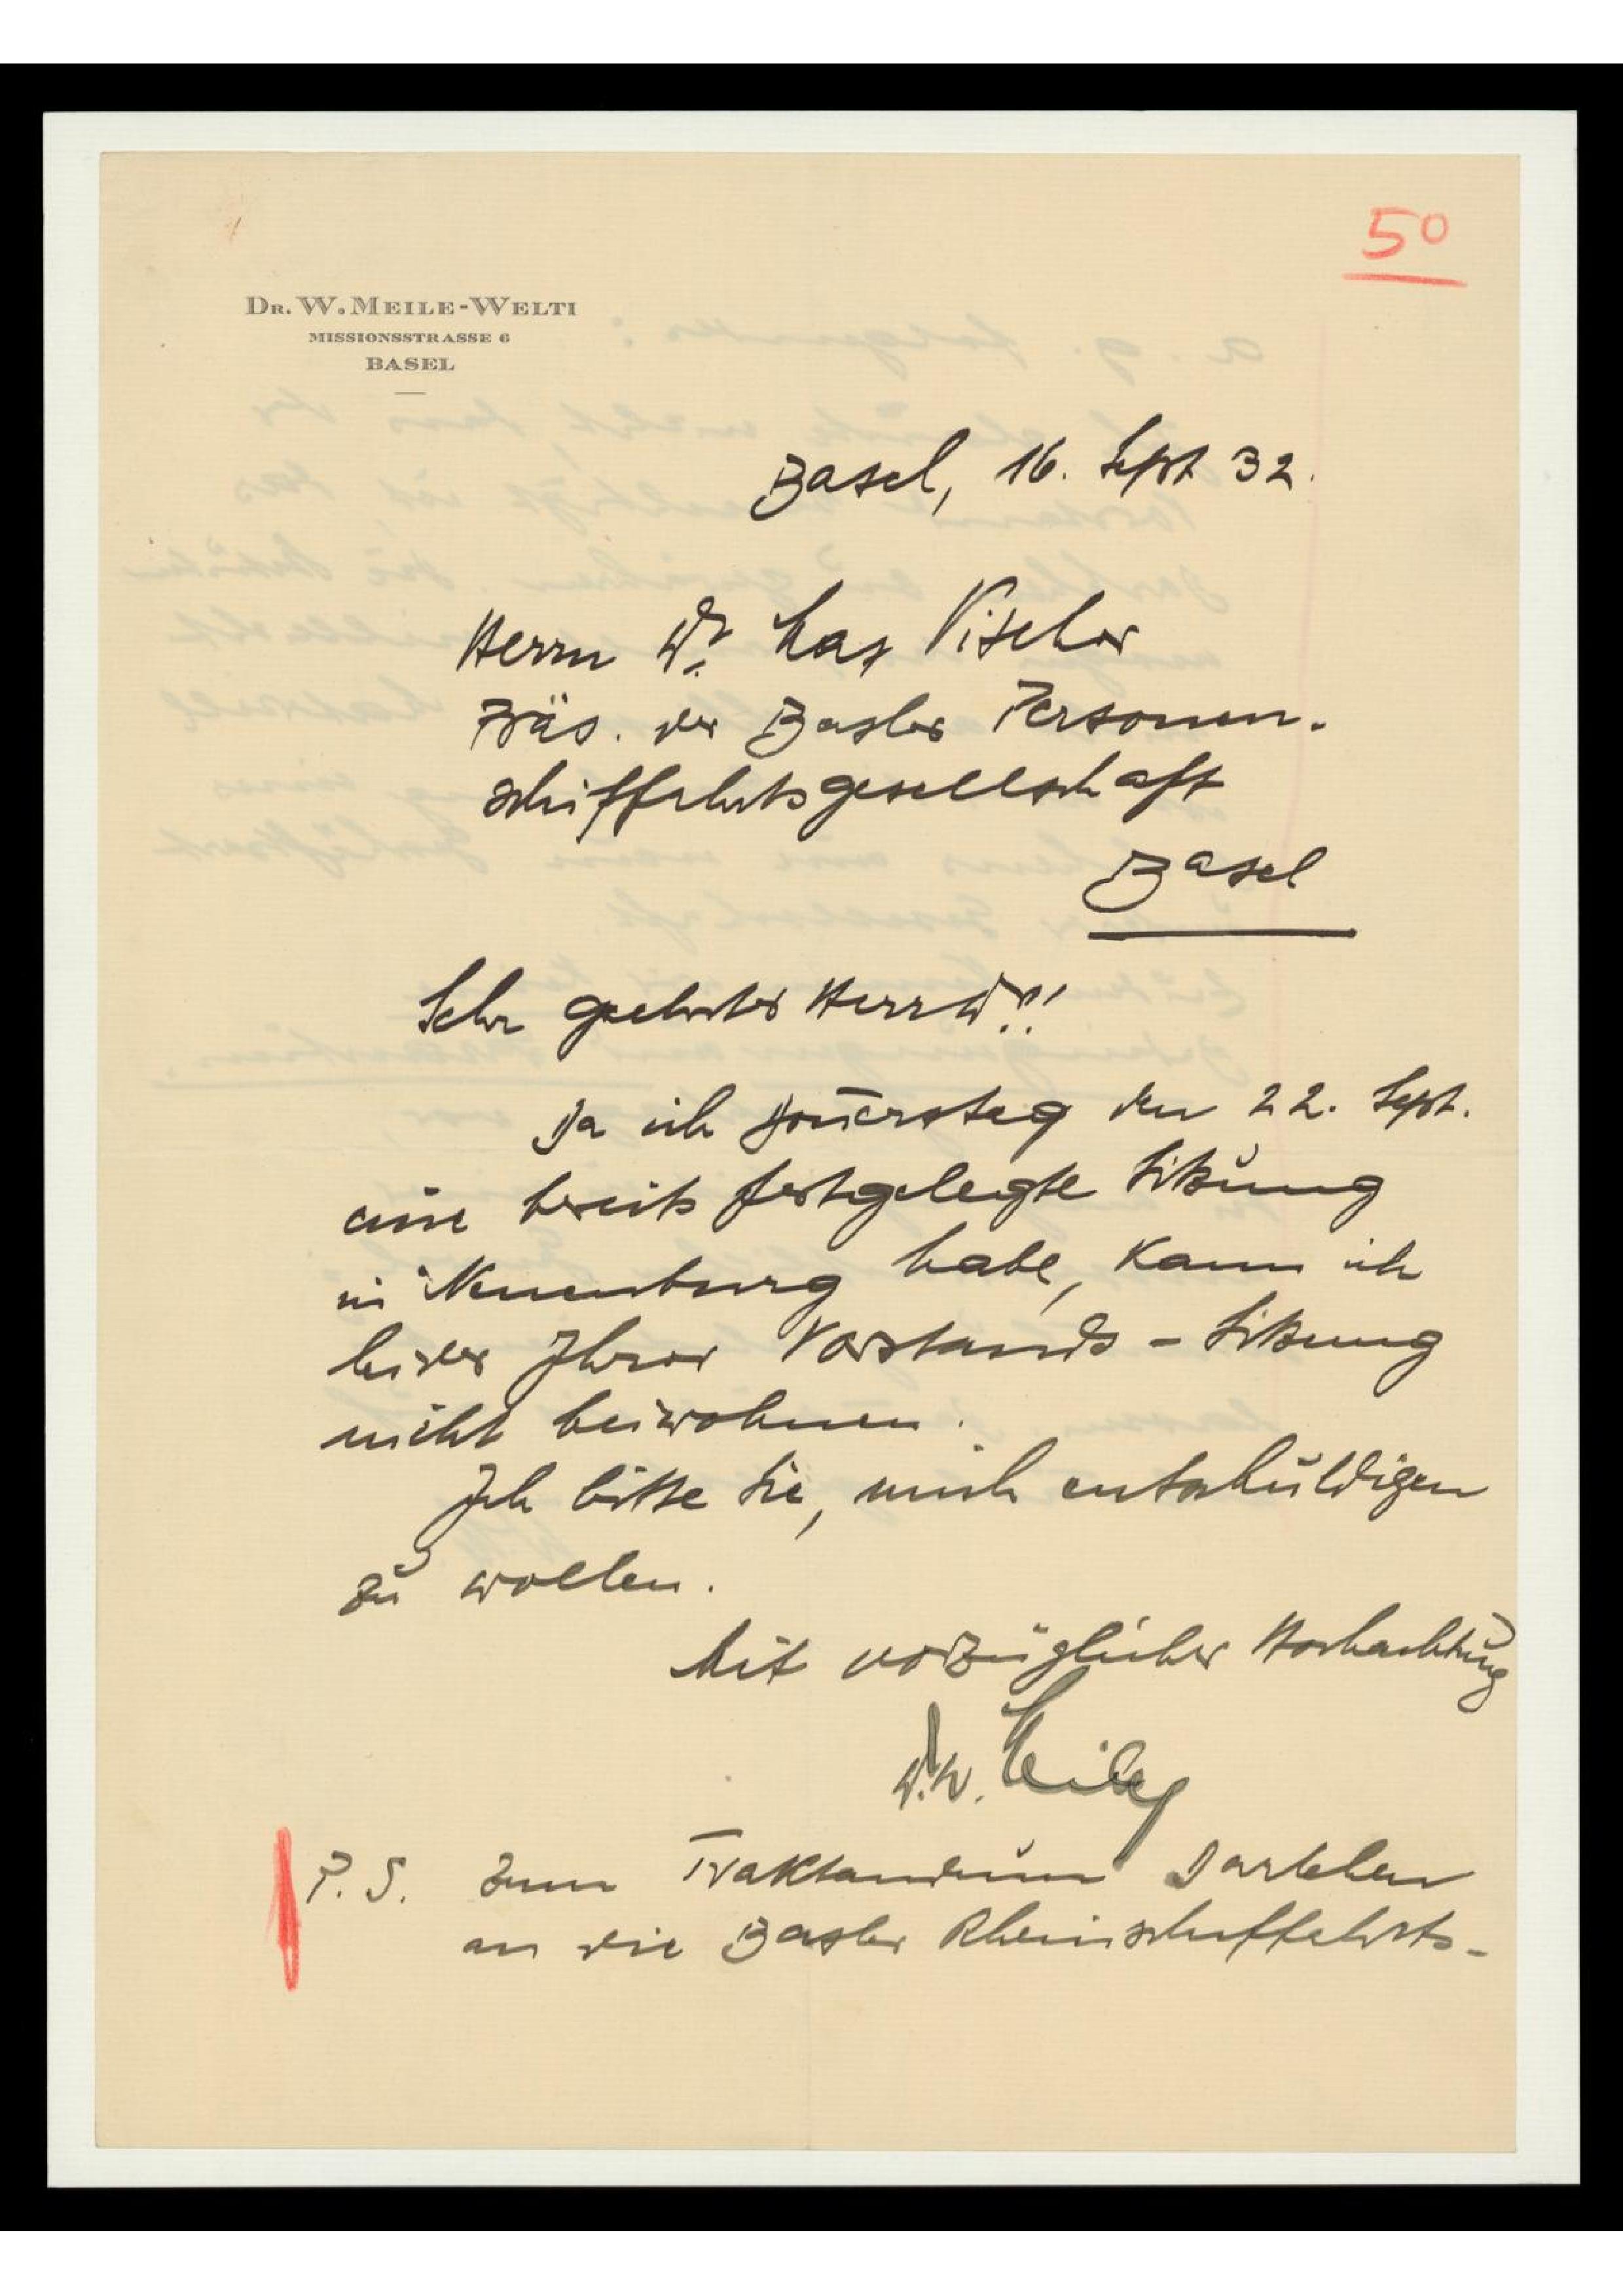 50
Dr. W. Meile-Welti
Missionsstrasse 6
Basel
Basel, 16. Sept 32.
Herrn Dr. Max Vischer
Präs. der Basler Personen-
schiffahrtsgesellschaft
Basel
Sehr geehrter Herr Dr.!
Da ich Donnerstag den 22. Sept.
eine bereits festgelegte Sitzung
in Neuenburg habe, kann ich
leider Ihrer Vorstands-Sitzung
nicht beiwohnen.
Ich bitte Sie, mich entschuldigen
zu wollen.
Mit vorzüglicher Hochachtung
Dr. W. Meile
P.S. Zum Traktandum Darlehen
an die Basler Rheinschiffahrts-